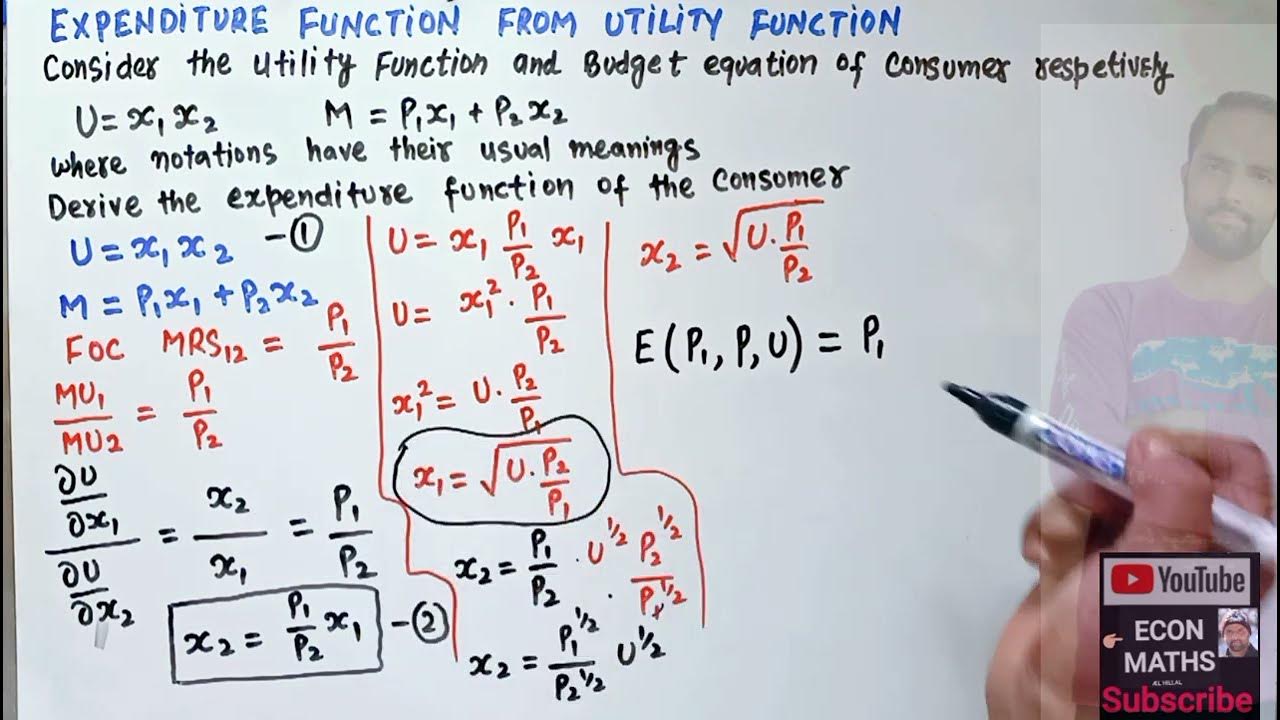 EXPENDITURE FUNCTION FROM UTILITY FUNCTION
Consider the Utility Function and Budget equation of Consumer respetively
U = x₁ x₂ M = P₁x₁ + P₂x₂
where notations have their usual meanings
Derive the expenditure function of the Consomer
U = x₁ x₂ -①
M = P₁x₁ + P₂x₂
FOC MRS₁₂ = P₁/P₂
MU₁/MU₂ = P₁/P₂
∂U/∂x₁ / ∂U/∂x₂ = x₂/x₁ = P₁/P₂
x₂ = P₁/P₂ x₁ -②
U = x₁ P₁/P₂ x₁
U = x₁² · P₁/P₂
x₁² = U · P₂/P₁
x₁ = √(U · P₂/P₁)
x₂ = P₁/P₂ · U^1/2 · P₂^1/2/P₁^1/2
x₂ = P₁^1/2/P₂^1/2 U^1/2
x₂ = √(U · P₁/P₂)
E(P₁, P, U) = P₁
YouTube
ECON
MATHS
Subscribe